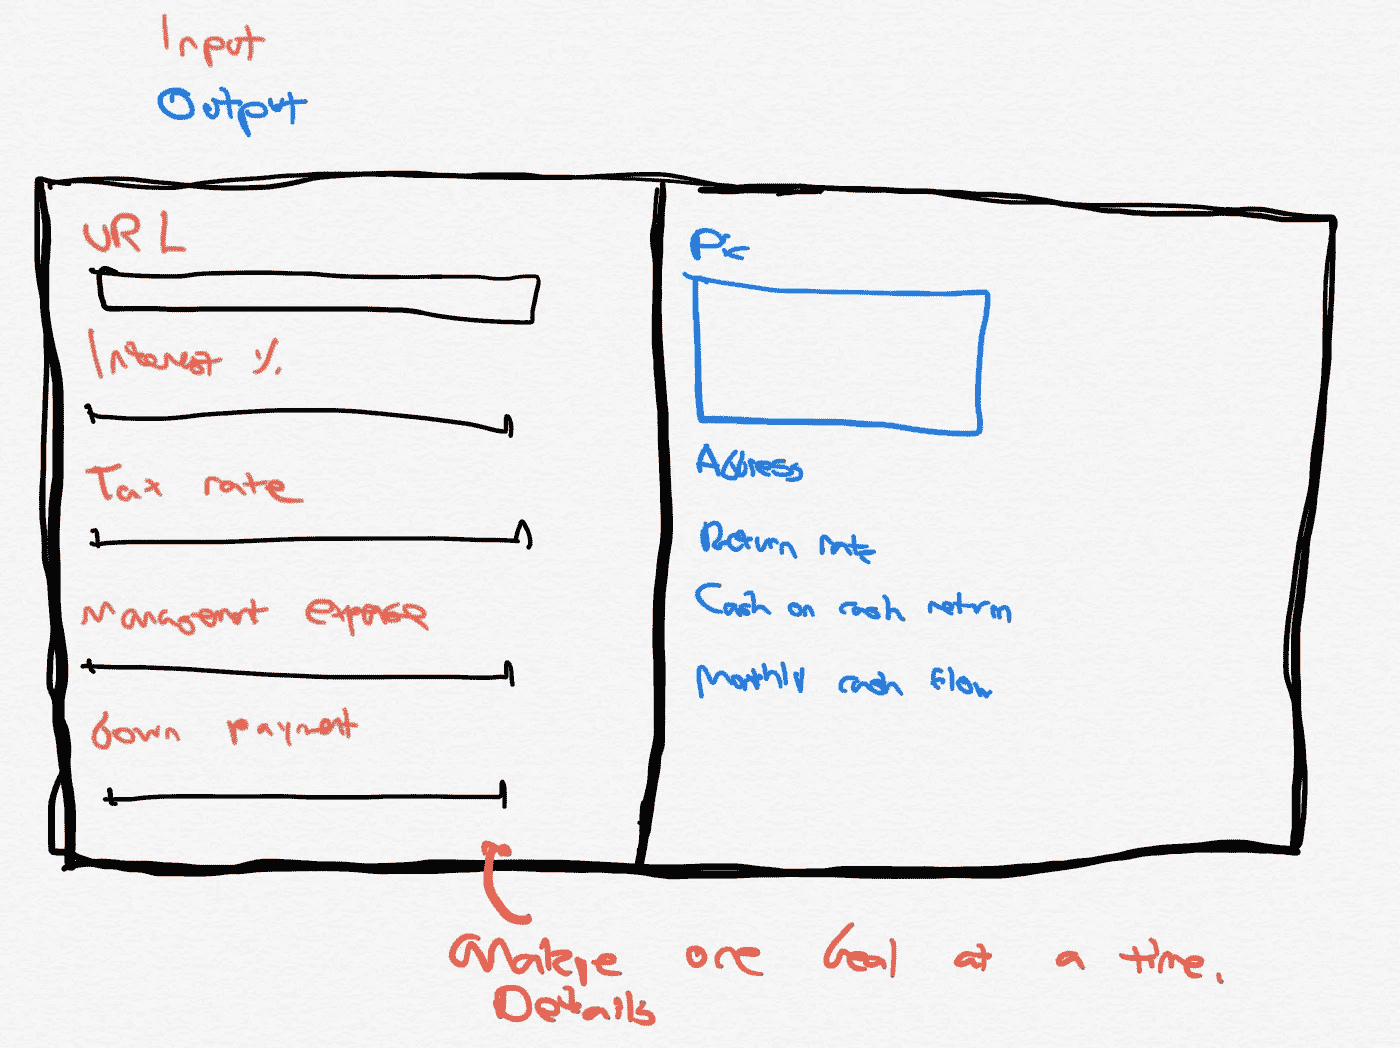 Input
Output
URL
Interest %
Tax rate
Management expense
Down payment
Pic
Address
Return rate
Cash on cash return
Monthly cash flow
one Deal at a time.
Details